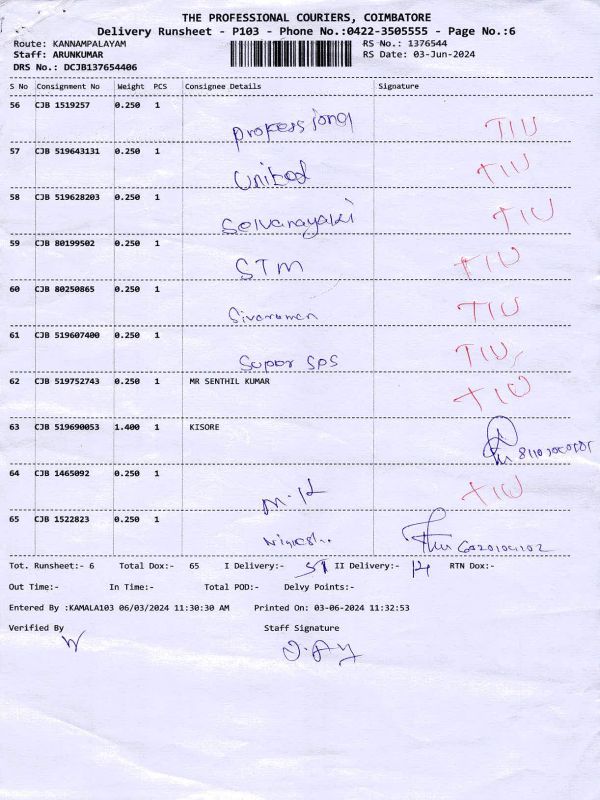 THE PROFESSIONAL COURIERS, COIMBATORE
Delivery Runsheet - P103 - Phone No.:0422-3505555 - Page No.:6
Route: KANNAMPALAYAM RS No.: 1376544
Staff: ARUNKUMAR RS Date: 03-Jun-2024
DRS No.: DCJB137654406
S No Consignment No Weight PCS Consignee Details Signature
56 CJB 1519257 0.250 1 professional TIU
57 CJB 519643131 0.250 1 United TIU
58 CJB 519628203 0.250 1 Selvanayaki TIU
59 CJB 80199502 0.250 1 STM TIU
60 CJB 80250865 0.250 1 Sivaraman TIU
61 CJB 519607400 0.250 1 Super SPS TIU
62 CJB 519752743 0.250 1 MR SENTHIL KUMAR TIU
63 CJB 519690053 1.400 1 KISORE
64 CJB 1465092 0.250 1 TIU
65 CJB 1522823 0.250 1
Tot. Runsheet:- 6 Total Dox:- 65 I Delivery:- II Delivery:- RTN Dox:-
Out Time:- In Time:- Total POD:- Delvy Points:-
Entered By :KAMALA103 06/03/2024 11:30:30 AM Printed On: 03-06-2024 11:32:53
Verified By Staff Signature